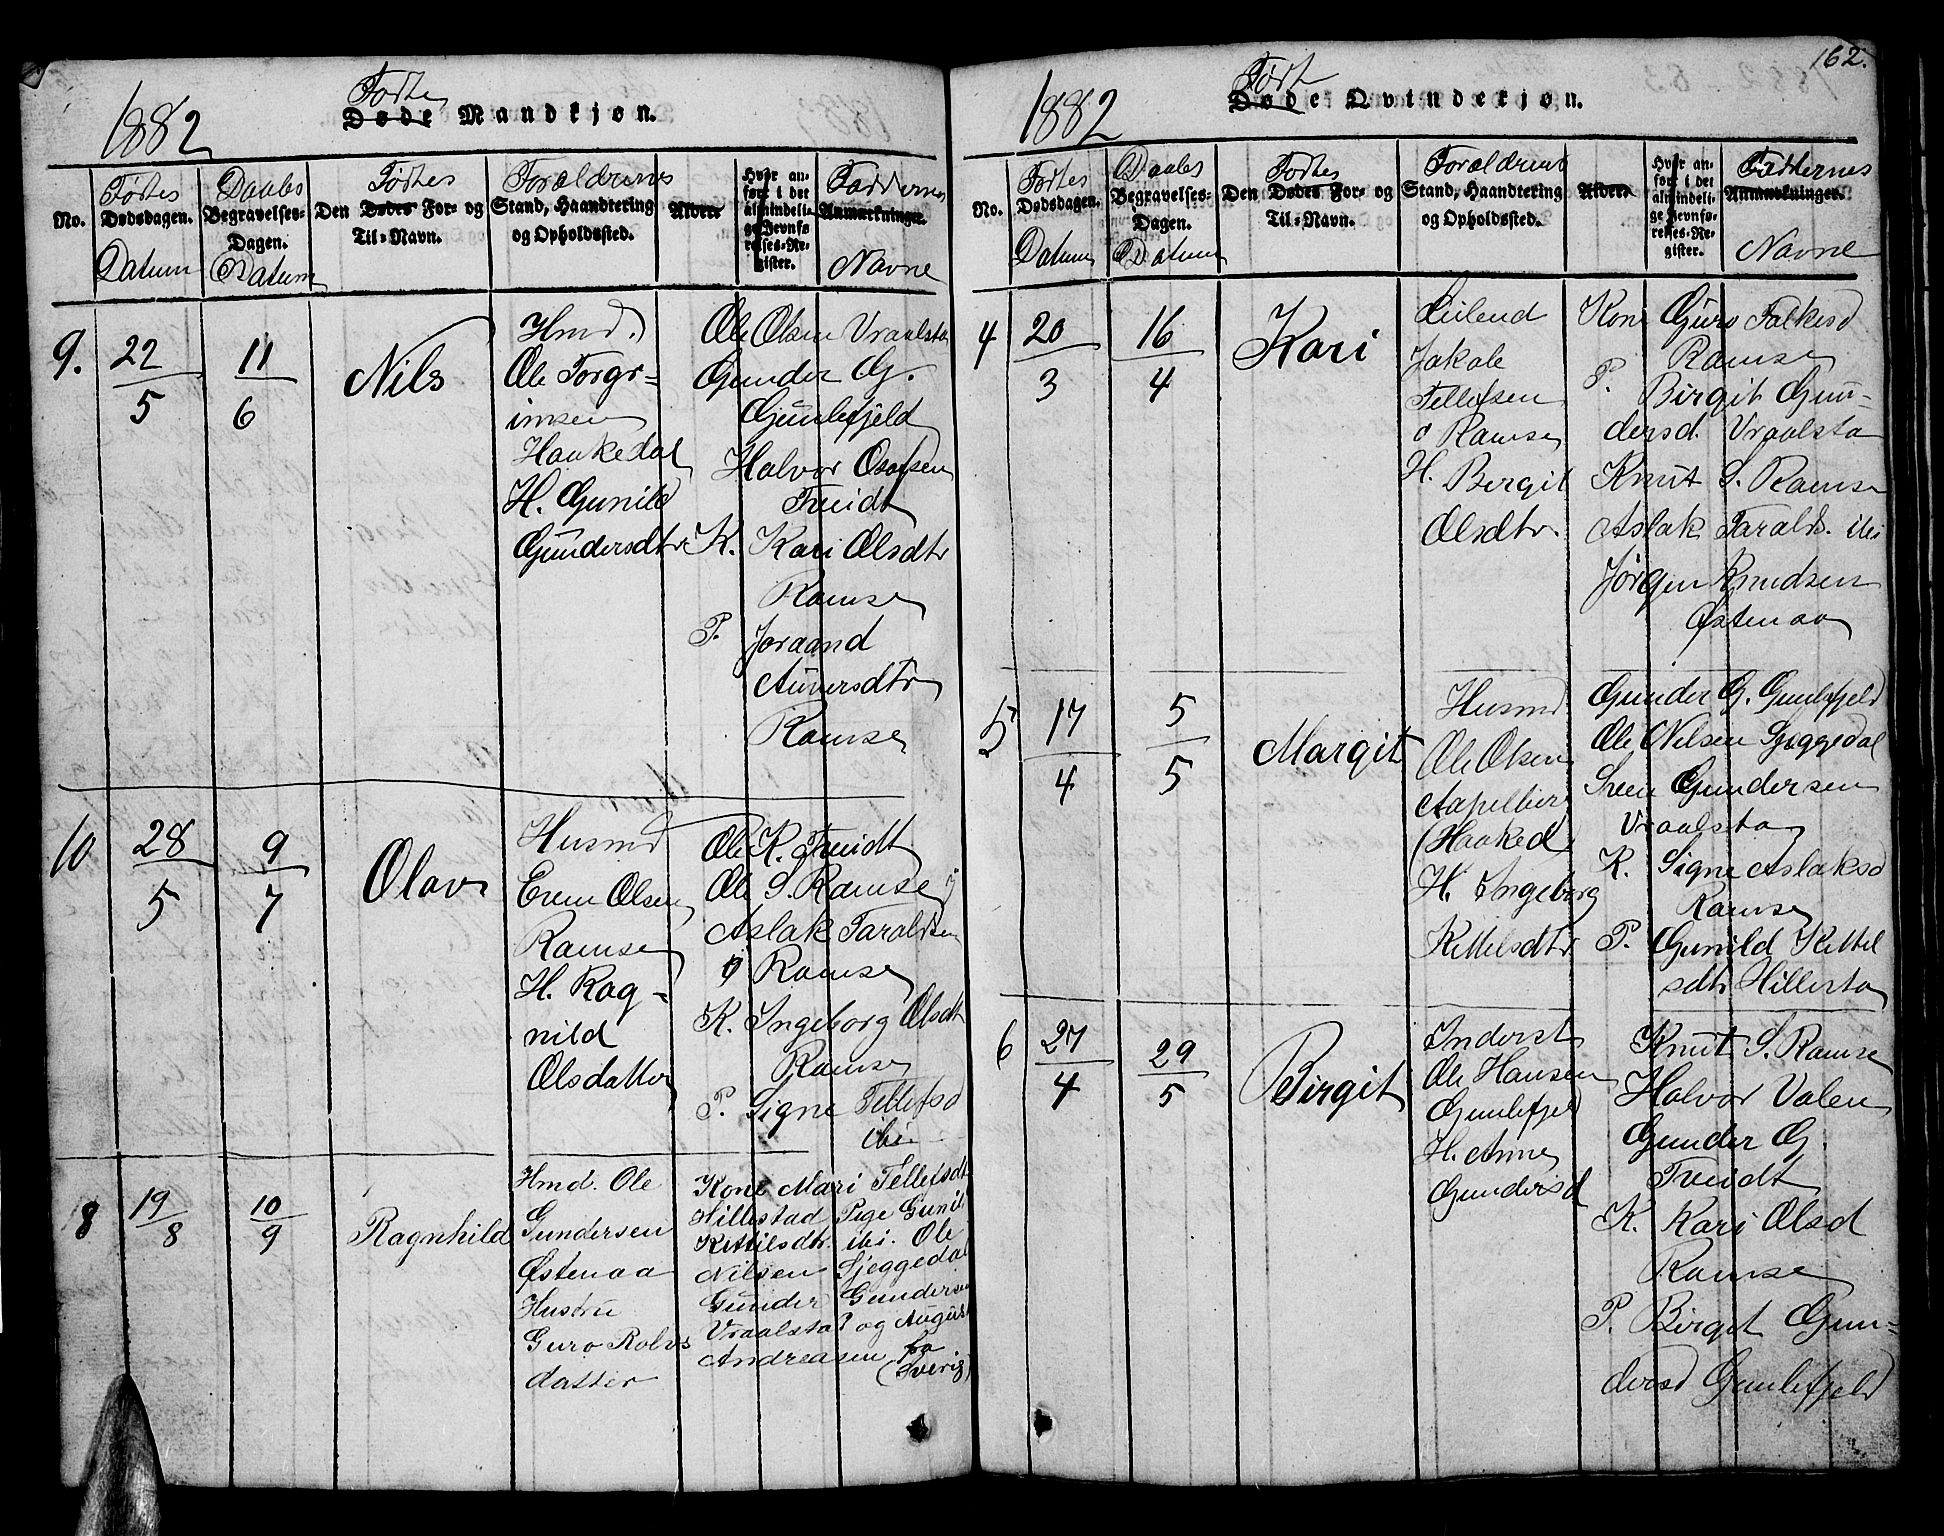 1882
Fødte
Døde Mandkjøn.
No.
Fødtes
Dødsdagen.
Datum
Daabs
Begravelses-
Dagen.
Datum
Fødtes
Den Dødes For- og
Til-Navn.
Forældrenes
Stand, Haandtering
og Opholdssted.
Alder.
Hvor an-
ført i det
almindeli-
ge Jevnfø-
relses-Re-
gister.
Faddernes
Anmærkninger.
Navne
9.
22/5
11/6
Nils
Hmd.
Ole Torgr-
imsen
Haakedal
H. Gunild
Gundersdtr
Ole Olsen Vraalsta
Gunder G.
Gunlefjeld
Halvor Osofsen
Tveidt
K. Kari Olsdtr
Ramse
P. Joraand
Auversdtr
Ramse
10
28/5
9/7
Olav
Husmd
Even Olsen
Ramse
H. Rag-
nild
Olsdatter
Ole K. Tveidt
Ole S. Ramse
Aslak Taraldsen
Ramse
K. Ingeborg Olsdt
Ramse
P. Signe Tellefsd
ibi
8
19/8
10/9
Ragnhild
Hmd. Ole
Gundersen
Østenaa
Hustru
Guro Rolvs
datter
Kone Mari Tellefsdt
Hillestad Pige Gunil
Kettilsdtr. ibi. Ole
Nilsen Sjeggedal
Gunder Gundersen
Vraalsta? og August
Andreasen fra
(Sverig)
162.
1882
Født
Døde Qvindekjøn.
No.
Fødtes
Dødsdagen.
Datum
Daabs
Begravelses-
Dagen.
Datum
Fødtes
Den Dødes For- og
Til-Navn.
Forældrenes
Stand, Haandtering
og Opholdssted.
Alder.
Hvor an-
ført i det
almindeli-
ge Jevnfø-
relses-Re-
gister.
Faddernes
Anmærkninger.
Navne
4
20/3
16/4
Kari
Leilend
Jakob
Tellefsen
Ramse
H. Bergit
Olsdtr.
Kone Guro Falkesd
Ramse
P. Birgit Gun-
dersd. Vraalsta
Knut S. Ramse
Aslak Taralds. ibi
Jørgen Knudsen
Østenaa
5
17/4
5/5
Margit
Husmd
Ole Olsen
Aapelbier
(Haaked)
H. Ingeborg
Kettelsdtr
Gunder G. Gunlefjeld
Ole Nilsen Sjeggedal
Sven Gundersen
Vraalsta
K. Signe Aslaksd
Ramse
P. Gunild Kettel
sdtr Hillesta
6
27/4
29/5
Birgit
Inderst
Ole Hansen
Gunlefjel
H. Anne
Gundersd
Knut S. Ramse
Halvor Valen
Gunder G.
Tveidt
K. Kari Olsd
Ramse
P. Birget Gun-
dersd Gunlefjeld